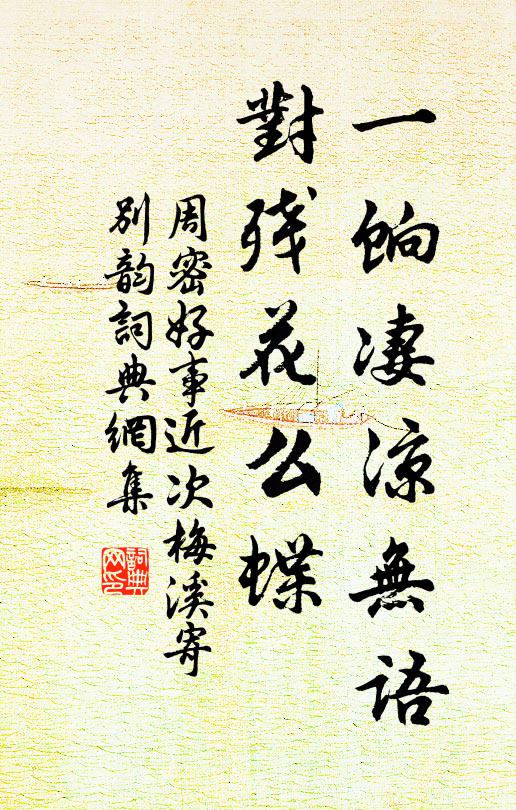 一餉凄涼無語
對残花么蝶
周密好事近次梅溪寄
别韵詞典網集
詞典网印